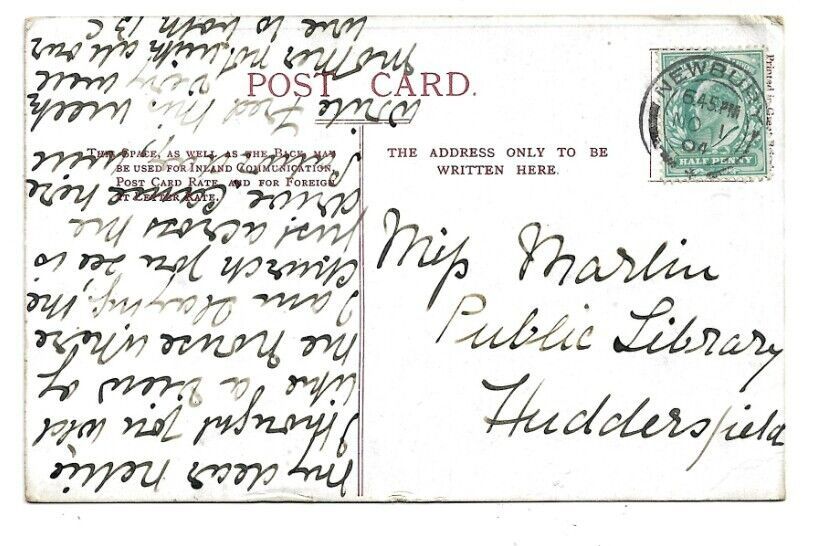 POST CARD.
THIS SPACE, AS WELL AS THE BACK, MAY
BE USED FOR INLAND COMMUNICATION,
POST CARD RATE, AND FOR FOREIGN
AT LETTER RATE.
THE ADDRESS ONLY TO BE
WRITTEN HERE.
NEWBURY
6.45 PM
NO 1
04
HALF PENNY
Printed in
Miss Martin
Public Library
Huddersfield
My dear Nellie
I thought you wld
like a view of
the house where
I am staying, the
Church you see is
just across the
drive Came here
will
write Fred this week
Mother not very well
with all our
love to both B C